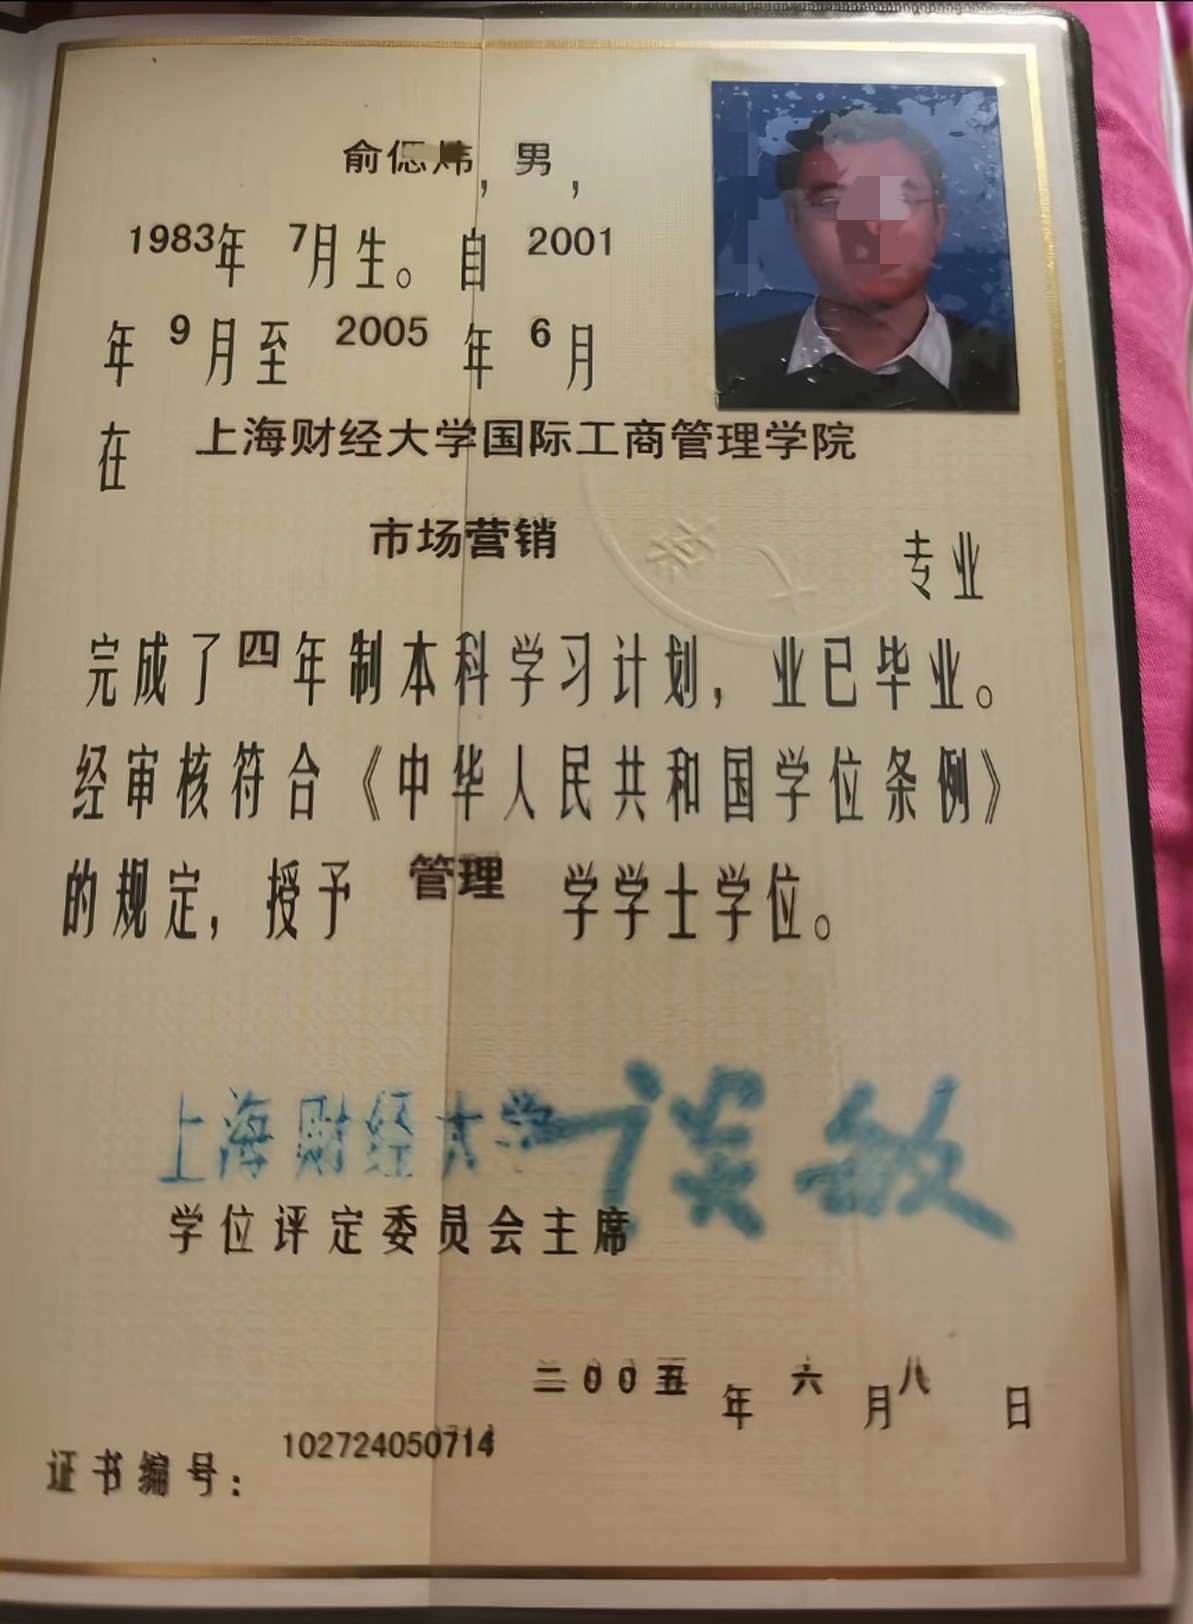 俞，男，
1983年 7月生。自 2001
年 9月至 2005 年 6月
在 上海财经大学国际工商管理学院
市场营销 专业
完成了四年制本科学习计划，业已毕业。
经审核符合《中华人民共和国学位条例》
的规定，授予 管理 学学士学位。
上海财经大学 谈敏
学位评定委员会主席
二00五 年 六 月 八 日
证书编号：102724050714